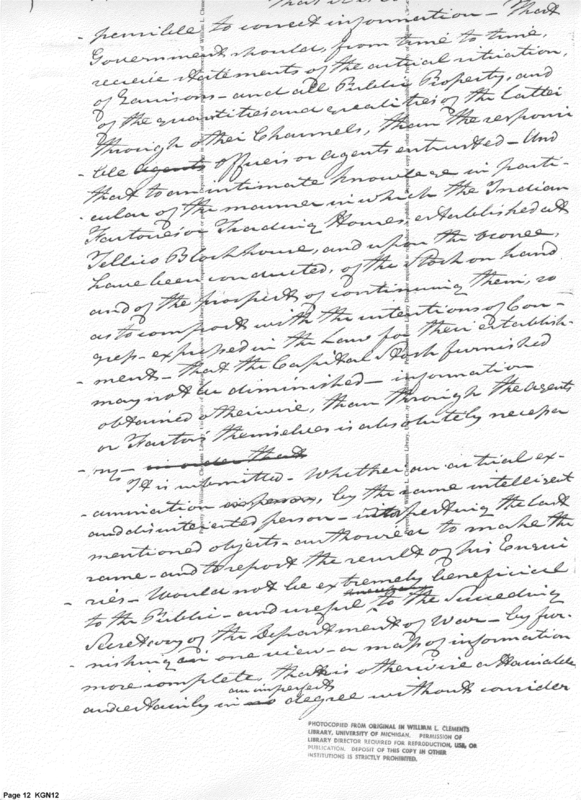 -permilled to correct information - that
Government should, from time to time,
receive statements of the actual situation,
of Garrisons - and all Public Property, and
of the quantities and qualities of the latter
through other Channels, than the responsi
-ble agents officers or agents entrusted - And
that to an intimate knowledge in parti-
-cular of the manner in which the Indian
Factories or Trading Houses, established at
Tellico Blockhouse, and upon the Oconee,
have been conducted, of the Stock on hand
and of the prospect of continuing them, so
as to comport with the intentions of Con-
gress - expressed in the Laws for their establish-
-ment - that the Capital Stock furnished
may not be diminished - information
obtained otherwise, than through the agents
or Factors themselves is absolutely necessa
-ry - in order that
It is submitted - Whether an actual ex-
-amination in person, by the same intelligent
and disinterested person - respecting the last
mentioned objects - authorized to make the
same - and to report the result of his Enqui
-ries - Would not be extremely beneficial
to the Public - and useful to the Succeeding
Secretary of the Department of War - by fur-
-nishing in one view - a map of information
more complete, than is otherwise attainable
an imperfect
and certainly in no degree without consider
PHOTOCOPIED FROM ORIGINAL IN WILLIAM L. CLEMENTS
LIBRARY, UNIVERSITY OF MICHIGAN. PERMISSION OF
LIBRARY DIRECTOR REQUIRED FOR REPRODUCTION, USE, OR
PUBLICATION. DEPOSIT OF THIS COPY IN OTHER
INSTITUTIONS IS STRICTLY PROHIBITED.
Page 12 KGN12